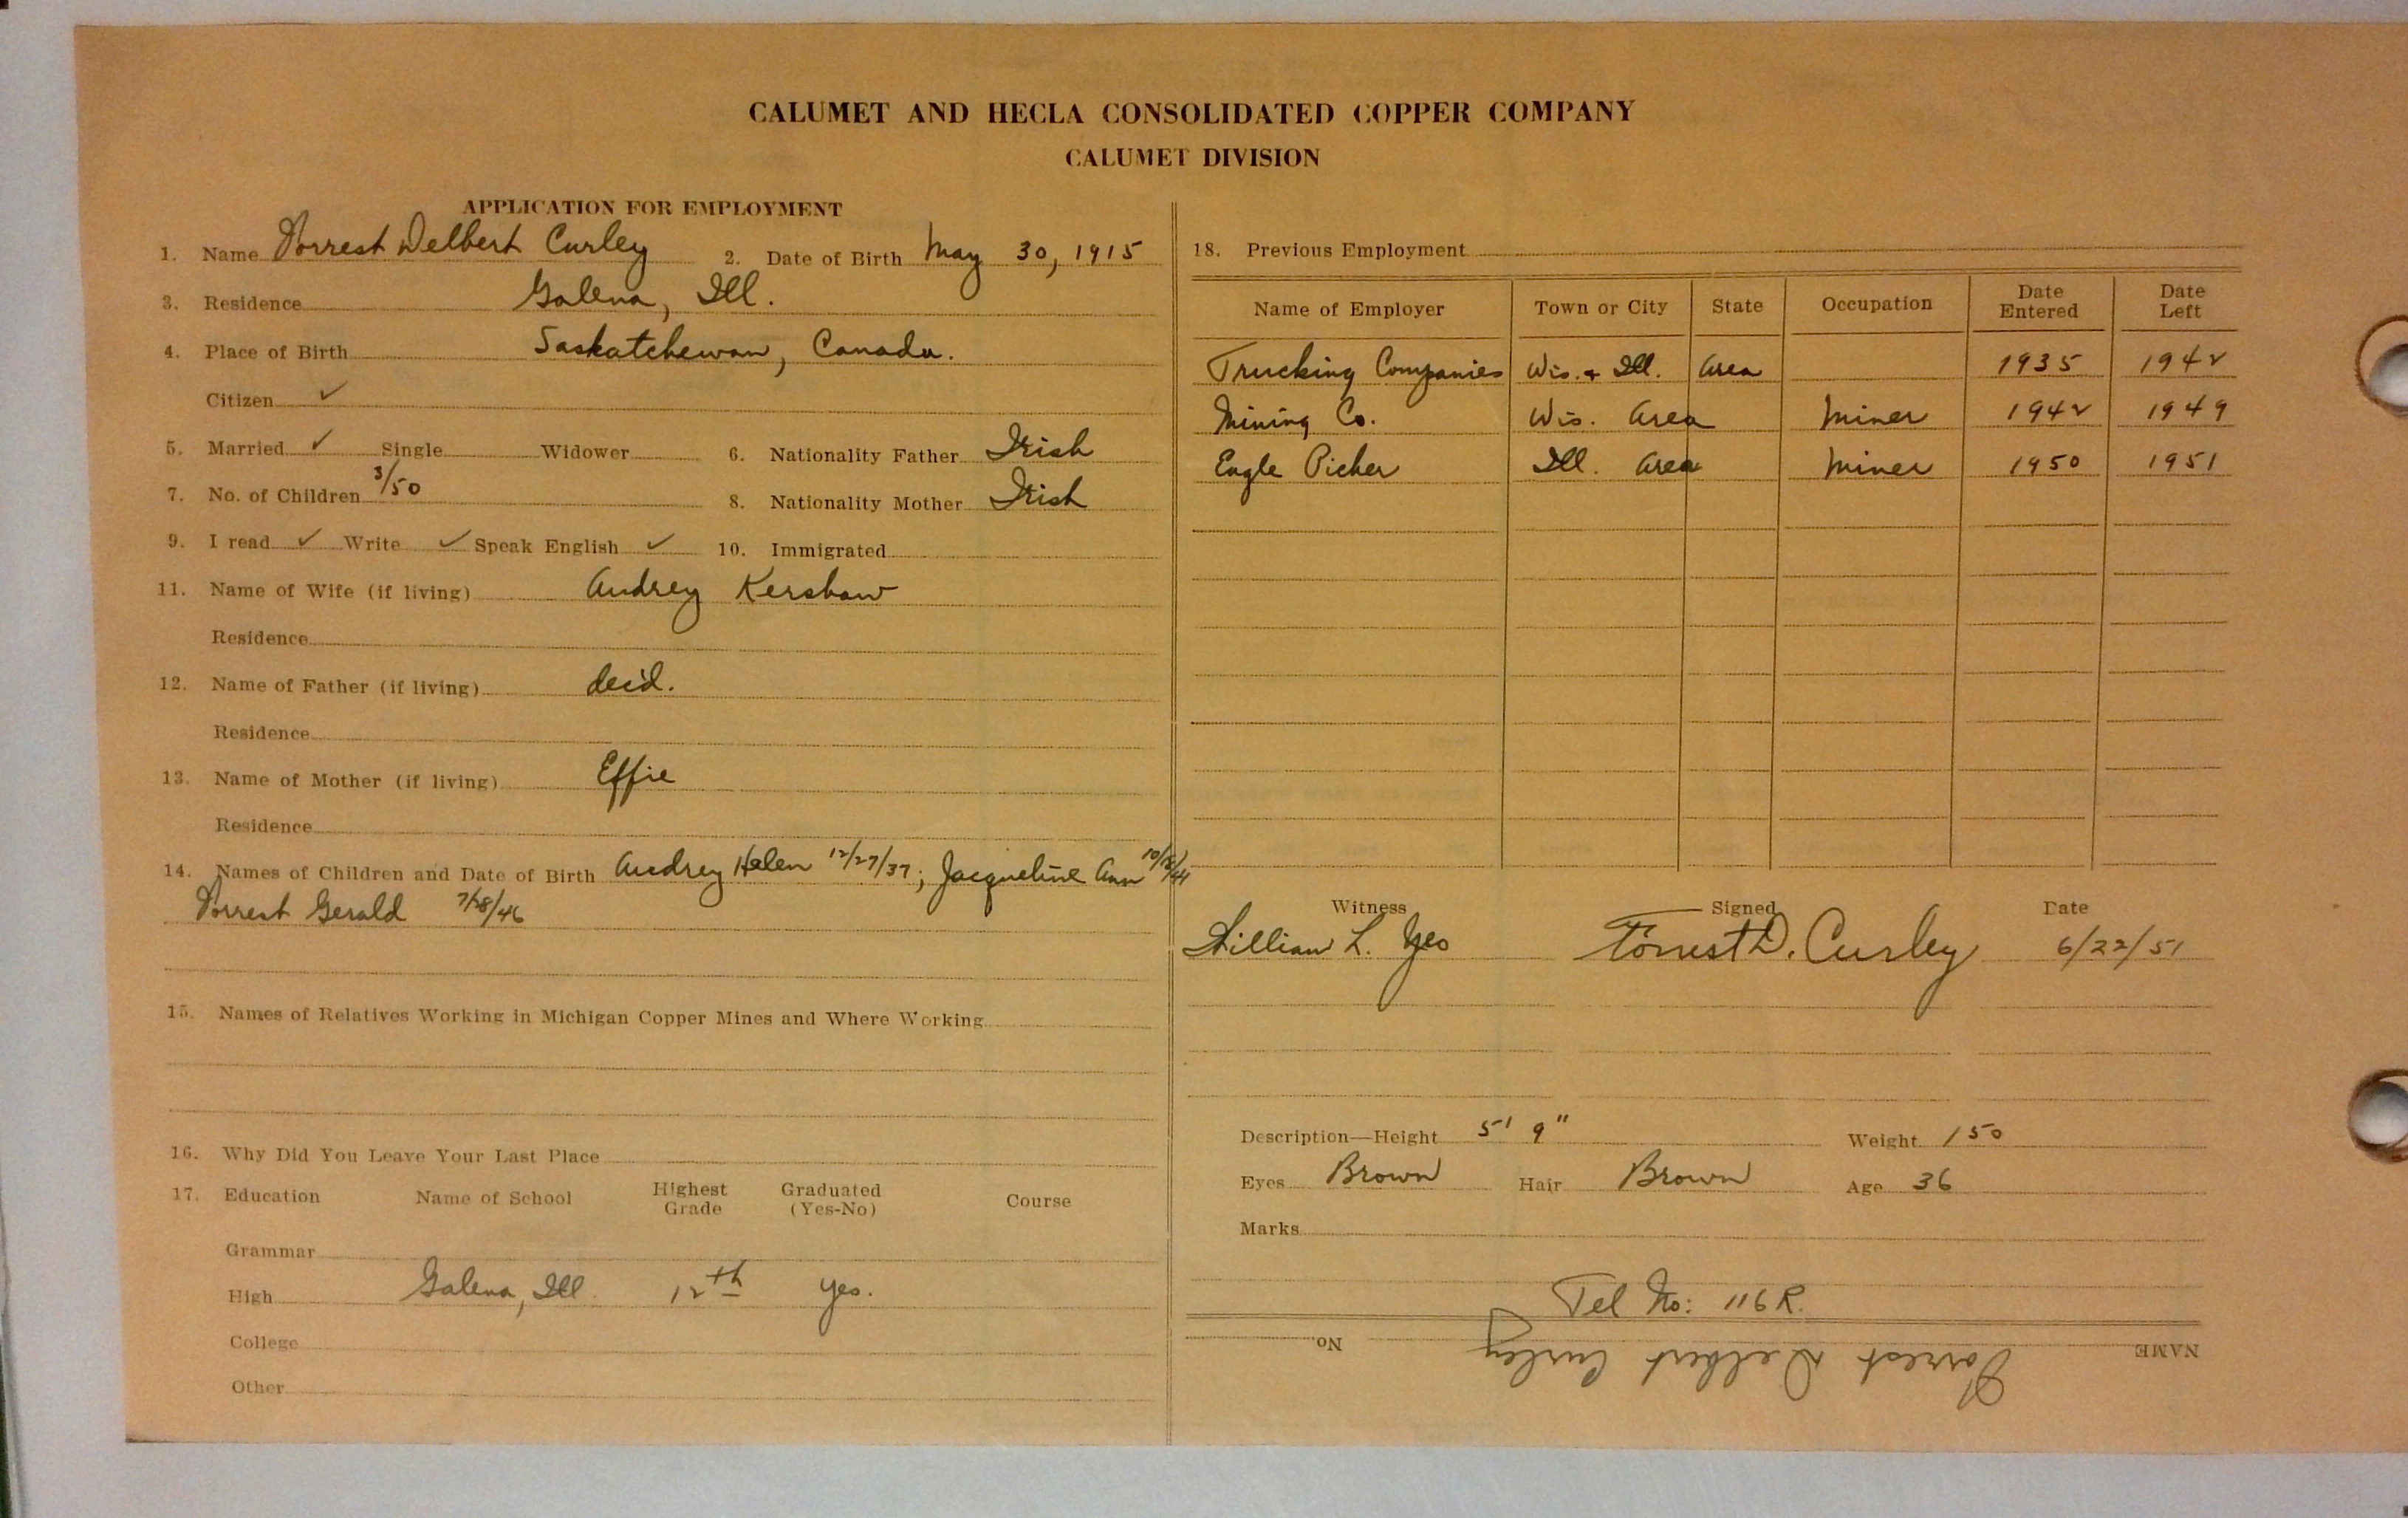 CALUMET AND HECLA CONSOLIDATED COPPER COMPANY
CALUMET DIVISION
APPLICATION FOR EMPLOYMENT
1. Name Forrest Delbert Curley 2. Date of Birth May 30, 1915
3. Residence Galena, Ill.
4. Place of Birth Saskatchewan, Canada.
Citizen ✓
5. Married ✓ Single Widower 6. Nationality Father Irish
7. No. of Children 3/50 8. Nationality Mother Irish
9. I read ✓ Write ✓ Speak English ✓ 10. Immigrated
11. Name of Wife (if living) Audrey Kershaw
Residence
12. Name of Father (if living) dec'd.
Residence
13. Name of Mother (if living) Effie
Residence
14. Names of Children and Date of Birth Audrey Helen 12/27/37; Jacqueline Ann
Forrest Gerald 7/28/46
15. Names of Relatives Working in Michigan Copper Mines and Where Working
16. Why Did You Leave Your Last Place
17. Education Name of School Highest Grade Graduated (Yes-No) Course
Grammar
High Galena, Ill. 12th yes.
College
Other
18. Previous Employment
Name of Employer Town or City State Occupation Date Entered Date Left
Trucking Companies Wis. & Ill. Area 1935 1942
Mining Co. Wis. Area Miner 1942 1949
Eagle Picher Ill. Area Miner 1950 1951
Witness Signed Date
Lillian L. Yeo Forrest D. Curley 6/22/51
Description—Height 5' 9" Weight 150
Eyes Brown Hair Brown Age 36
Marks
Tel No: 116R.
NAME Forrest Delbert Curley No.